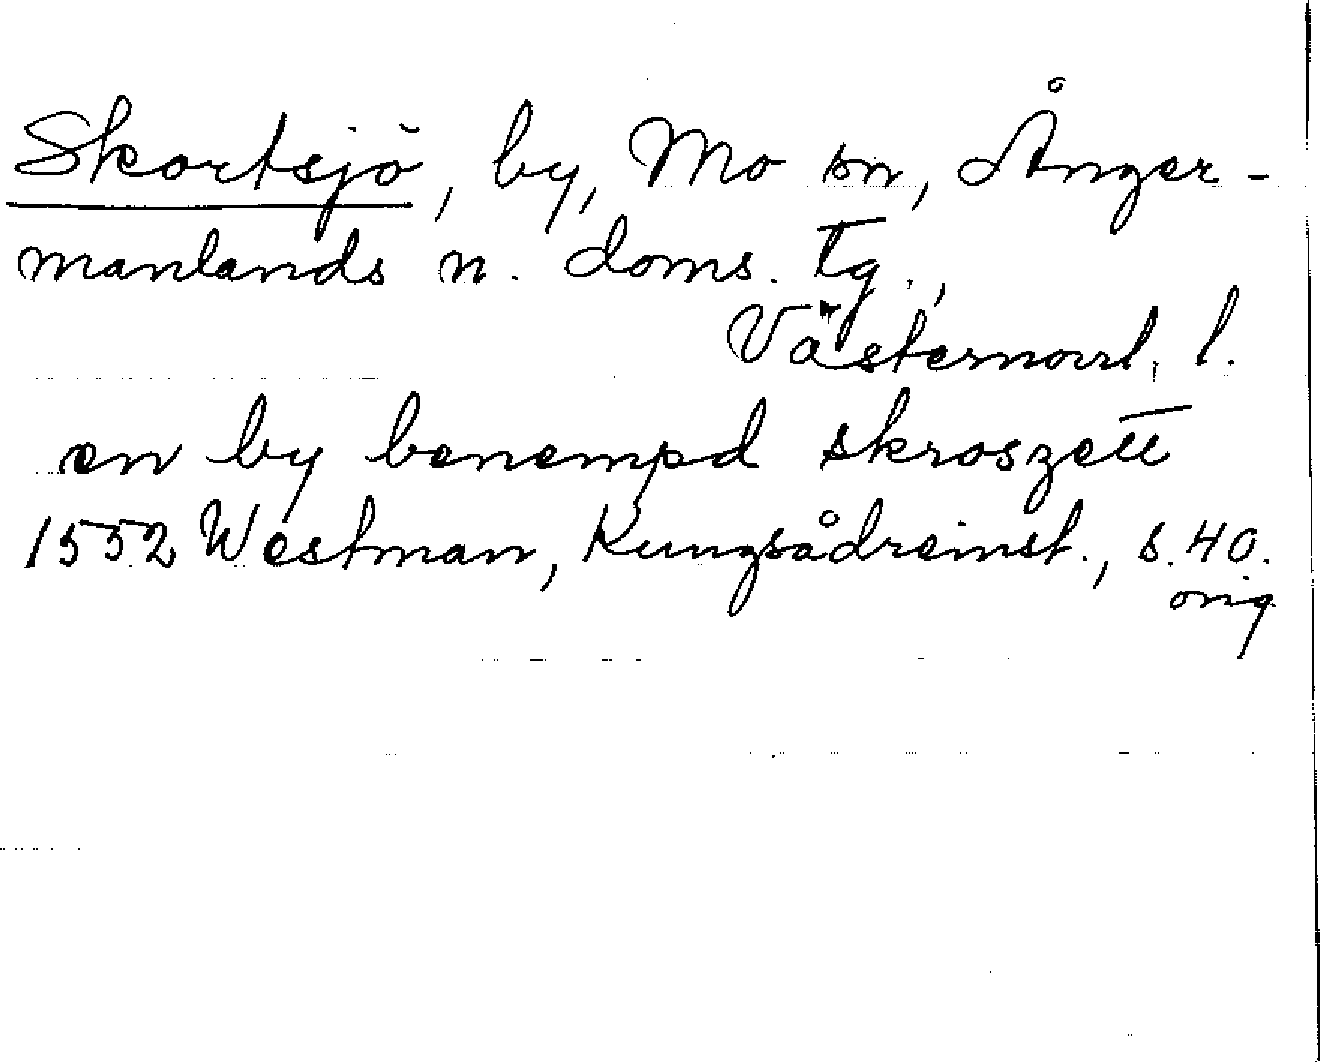 Skortsjö, by, Mo sn, Ånger-
manlands n. doms. tg.,
Västernorrl. l.
en by benempd skroszett
1552 Westman, Kungsådreinst., s. 40.
orig